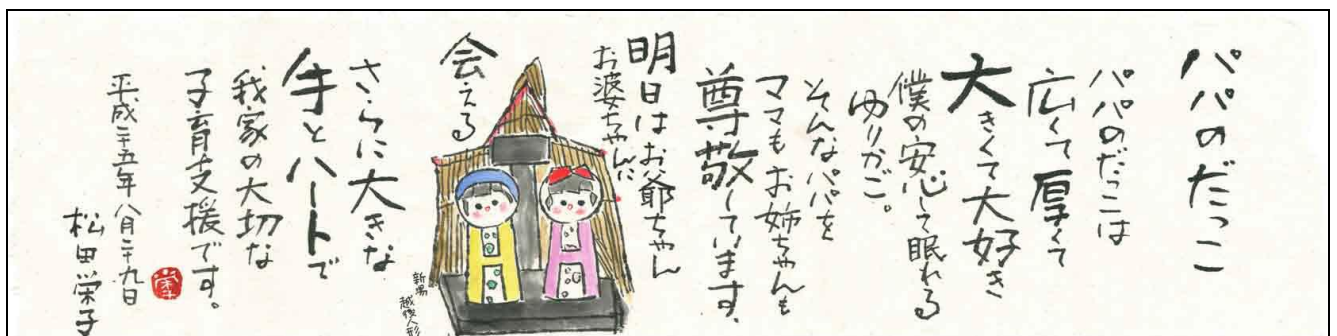 パパのだっこ
パパのだっこは
広くて厚くて
大きくて大好き
僕の安心して眠れる
ゆりかご。
そんなパパを
ママもお姉ちゃんも
尊敬しています。
明日はお爺ちゃん
お婆ちゃんに
会える
さらに大きな
手とハートで
我家の大切な
子育支援です。
平成二十五年八月二十九日
松田栄子
栄
新潟
越後人形